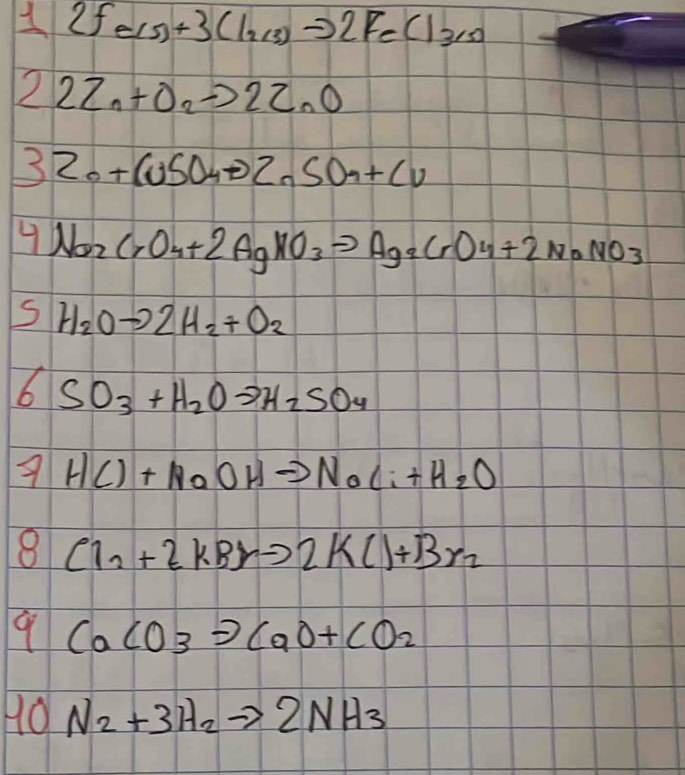 1 2Fe(s)+3Cl2(g)→2FeCl3(s)
2 2Zn+O2→2ZnO
3 Zn+CuSO4→ZnSO4+Cu
4 Na2CrO4+2AgNO3→Ag2CrO4+2NaNO3
5 H2O→2H2+O2
6 SO3+H2O→H2SO4
7 HCl+NaOH→NaCl+H2O
8 Cl2+2KBr→2KCl+Br2
9 CaCO3→CaO+CO2
10 N2+3H2→2NH3